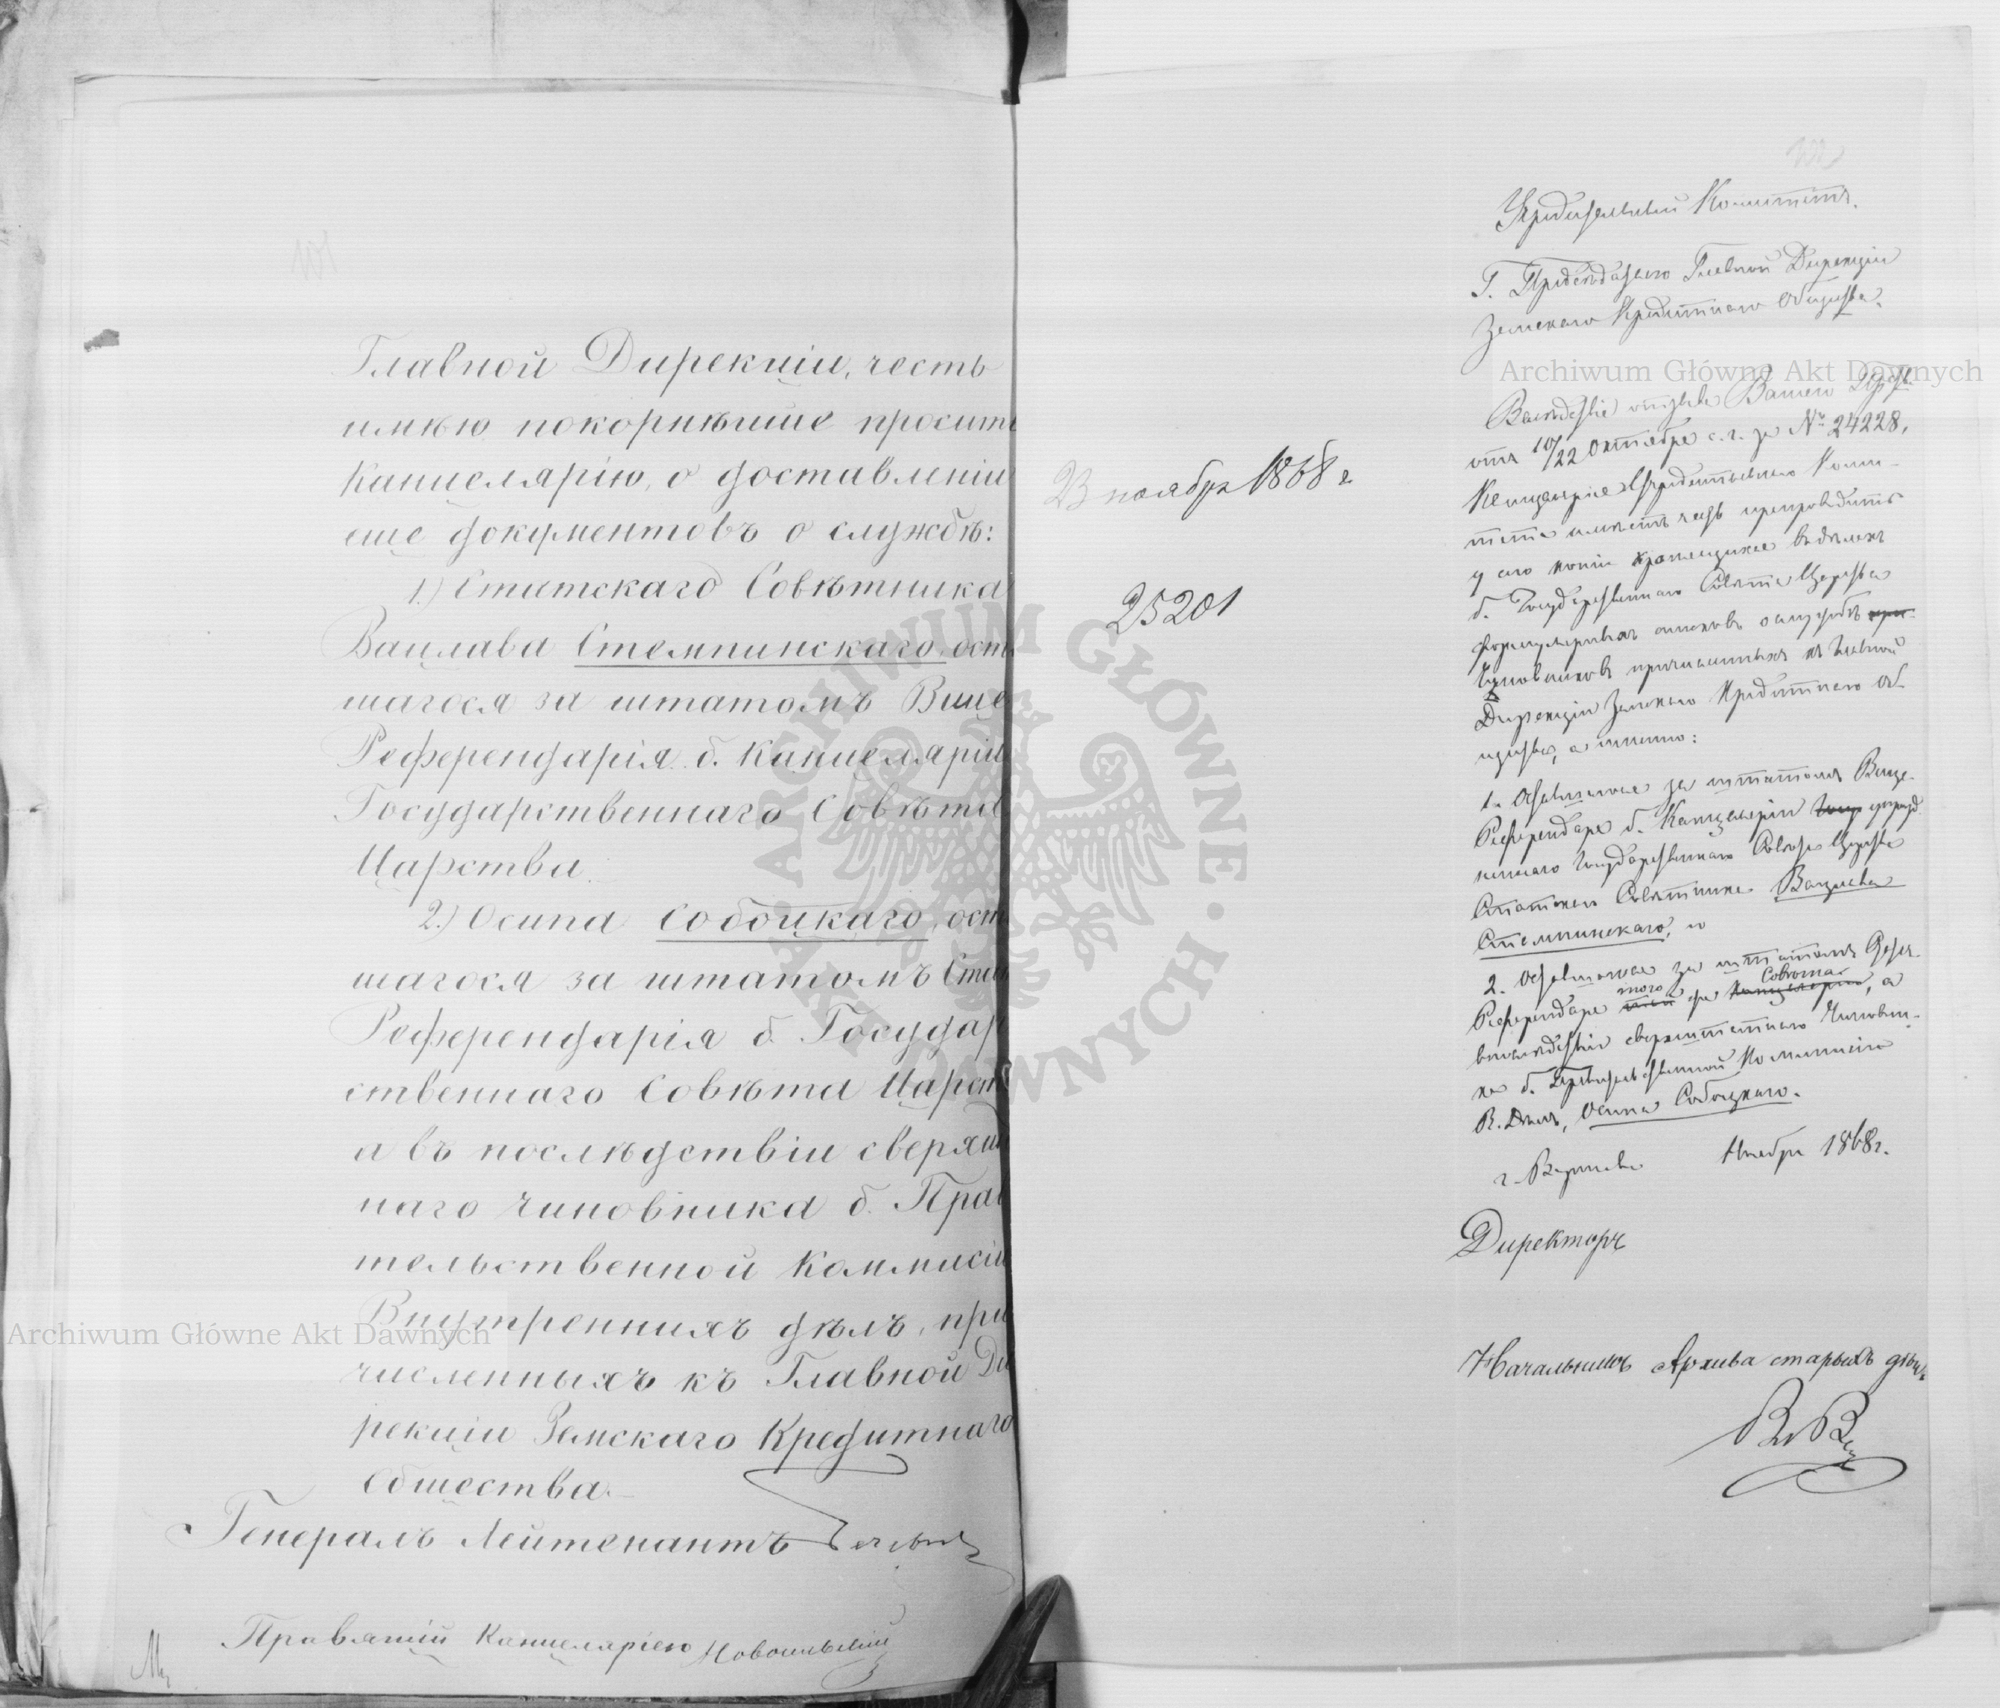 101
Главной Дирекціи, честь
имѣю покорнѣйше просить
Канцелярію, о доставленіи
еще документовъ о службѣ:
1.) Статскаго Совѣтника
Вацлава Стемпинскаго, ост
шагося за штатомъ Вице
Референдарія б. Канцеляріи
Государственнаго Совѣта
Царства.
2.) Осипа Собоцкаго, ост
шагося за штатомъ Стат
Референдарія б. Государ
ственнаго Совѣта Царст
а въ послѣдствіи сверхш
наго чиновника б. Прав
тельственной Коммисіи
Внутреннихъ дѣлъ, при
численныхъ къ Главной Ди
рекціи Земскаго Кредитнаго
Общества.
Генералъ Лейтенантъ
Правящій Канцеляріею
23 ноября 1868 г.
25201
Учредительный Комитетъ.
Г. Предсѣдателю Главной Дирекціи
Земскаго Кредитнаго Общества.
Вслѣдствіе отзыва Вашего
отъ 10/22 Октября с. г. за № 24228,
Канцелярія Учредительнаго Коми-
тета имѣетъ честь препроводить
у сего копіи хранящихся въ дѣлахъ
б. Государственнаго Совѣта Царства
формулярныхъ списковъ о службѣ при-
Чиновниковъ причисленныхъ къ Главной
Дирекціи Земскаго Кредитнаго Об
щества, а именно:
1. Оставшагося за штатомъ Вице-
Референдаря б. Канцеляріи Госу упразд
неннаго Государственнаго Совѣта Царства
Статскаго Совѣтника Вацлава
Стемпинскаго, и
2. Оставшагося за штатомъ
Референдаря того же Совѣта Канцеляріи, а
впослѣдствіи сверхштатнаго Чиновни-
ка б. Правительственной Коммисіи
В. Дѣлъ, Осипа Собоцкаго.
г. Варшава Ноября 1868 г.
Директоръ
Начальникъ Архива старыхъ дѣлъ
Archiwum Główne Akt Dawnych
Archiwum Główne Akt Dawnych
ARCHIWUM GŁÓWNE · AKT DAWNYCH ·